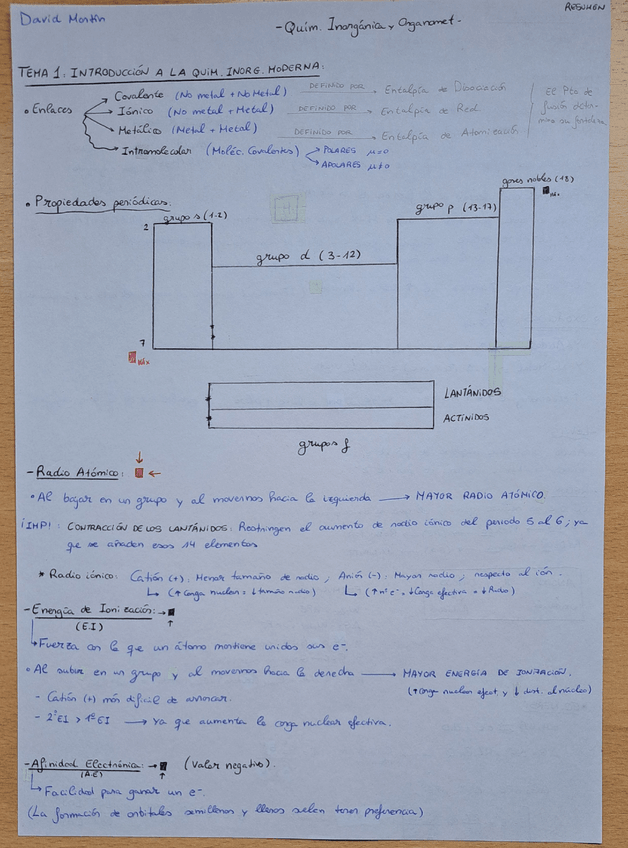 David Martín
RESUMEN
- Quím. Inorgánica y Organomet -
TEMA 1: INTRODUCCIÓN A LA QUIM. INORG. MODERNA:
• Enlaces
Covalente (No metal + No Metal) DEFINIDO POR Entalpía de Disociación
Iónico (No metal + Metal) DEFINIDO POR Entalpía de Red.
Metálico (Metal + Metal) DEFINIDO POR Entalpía de Atomización
Intramolecular (Moléc. Covalentes) POLARES μ=0
APOLARES μ≠0
El Pto de
fusión deter-
mina su fortaleza
• Propiedades periódicas.
gases nobles (18)
Máx
grupo s (1-2)
grupo p (13-17)
2
grupo d (3-12)
7
Máx
LANTÁNIDOS
ACTÍNIDOS
grupos f
- Radio Atómico: ↓ ←
• Al bajar en un grupo y al movernos hacia la izquierda → MAYOR RADIO ATÓMICO.
¡IMP! : CONTRACCIÓN DE LOS LANTÁNIDOS: Restringen el aumento de radio iónico del periodo 5 al 6; ya
que se añaden esos 14 elementos
* Radio iónico: Catión (+): Menor tamaño de radio; Anión (-): Mayor radio; respecto al ión.
↳ (↑ Carga nuclear = ↓ tamaño radio) ↳ (↑ nº e⁻ = ↓ Carga efectiva = ↓ Radio)
- Energía de Ionización: → ↑
(E.I)
↳ Fuerza con la que un átomo mantiene unidos sus e⁻.
• Al subir en un grupo y al movernos hacia la derecha → MAYOR ENERGÍA DE IONIZACIÓN.
(↑ carga nuclear efect. y ↓ dist. al núcleo)
- Catión (+) más difícil de arrancar.
- 2ªEI > 1ªEI → ya que aumenta la carga nuclear efectiva.
- Afinidad Electrónica: → ↑ (Valor negativo).
(A.E)
↳ Facilidad para ganar un e⁻.
(La formación de orbitales semillenos y llenos suelen tener preferencia)